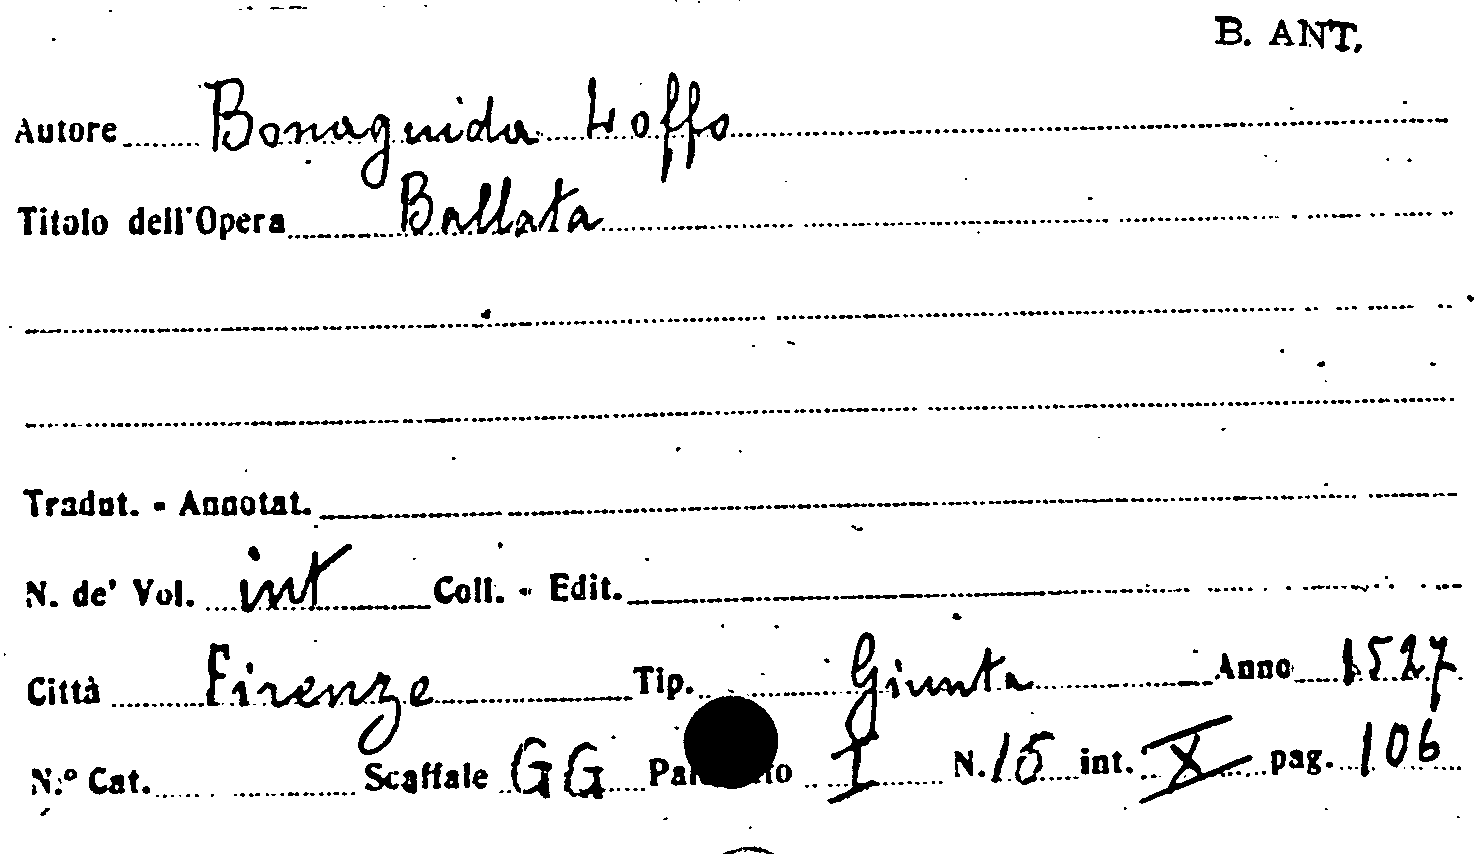 B. ANT.
Autore Bonaguida Loffo
Titolo dell'Opera Ballata
Tradut. - Annotat.
N. de' Vol. int Coll. - Edit.
Città Firenze Tip. Giunta Anno 1527
N.° Cat. Scaffale GG I N. 15 int. X pag. 106